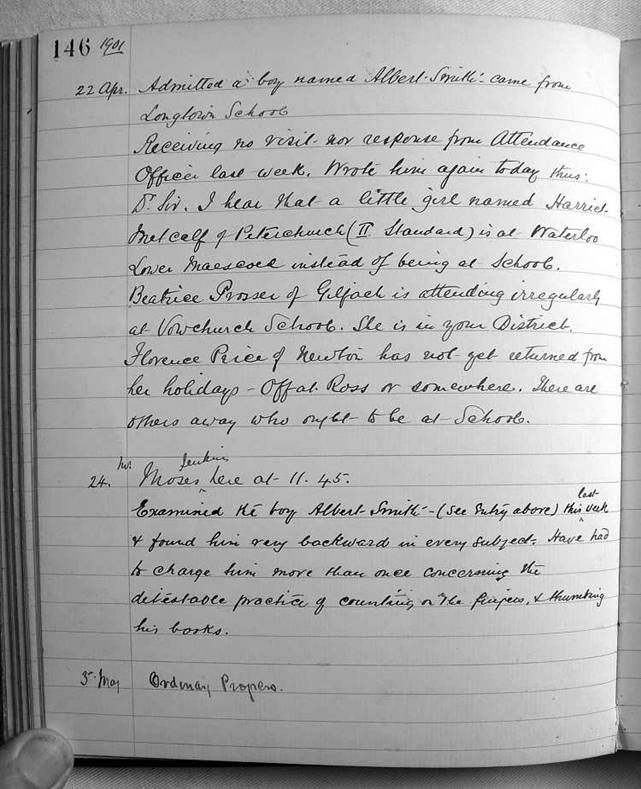 146 1901
22 Apr. Admitted a boy named Albert Smith - came from
Longtown School
Receiving no visit nor response from Attendance
Officer last week. Wrote him again today thus:
Dr Sir. I hear that a little girl named Harriet
Metcalf of Peterchurch (II Standard) is at Waterloo
Lower Maescoed instead of being at School.
Beatrice Prosser of Gilfach is attending irregularly
at Vowchurch School. She is in your District.
Florence Price of Newton has not yet returned from
her holidays - Off at Ross or somewhere. There are
others away who ought to be at School.
24. Mr Moses Jenkins here at 11.45.
Examined the boy Albert Smith - (see Entry above) this last week
& found him very backward in every subject. Have had
to charge him more than once concerning the
detestable practice of counting on the fingers, & thumbing
his books.
3 May Ordinary Progress.